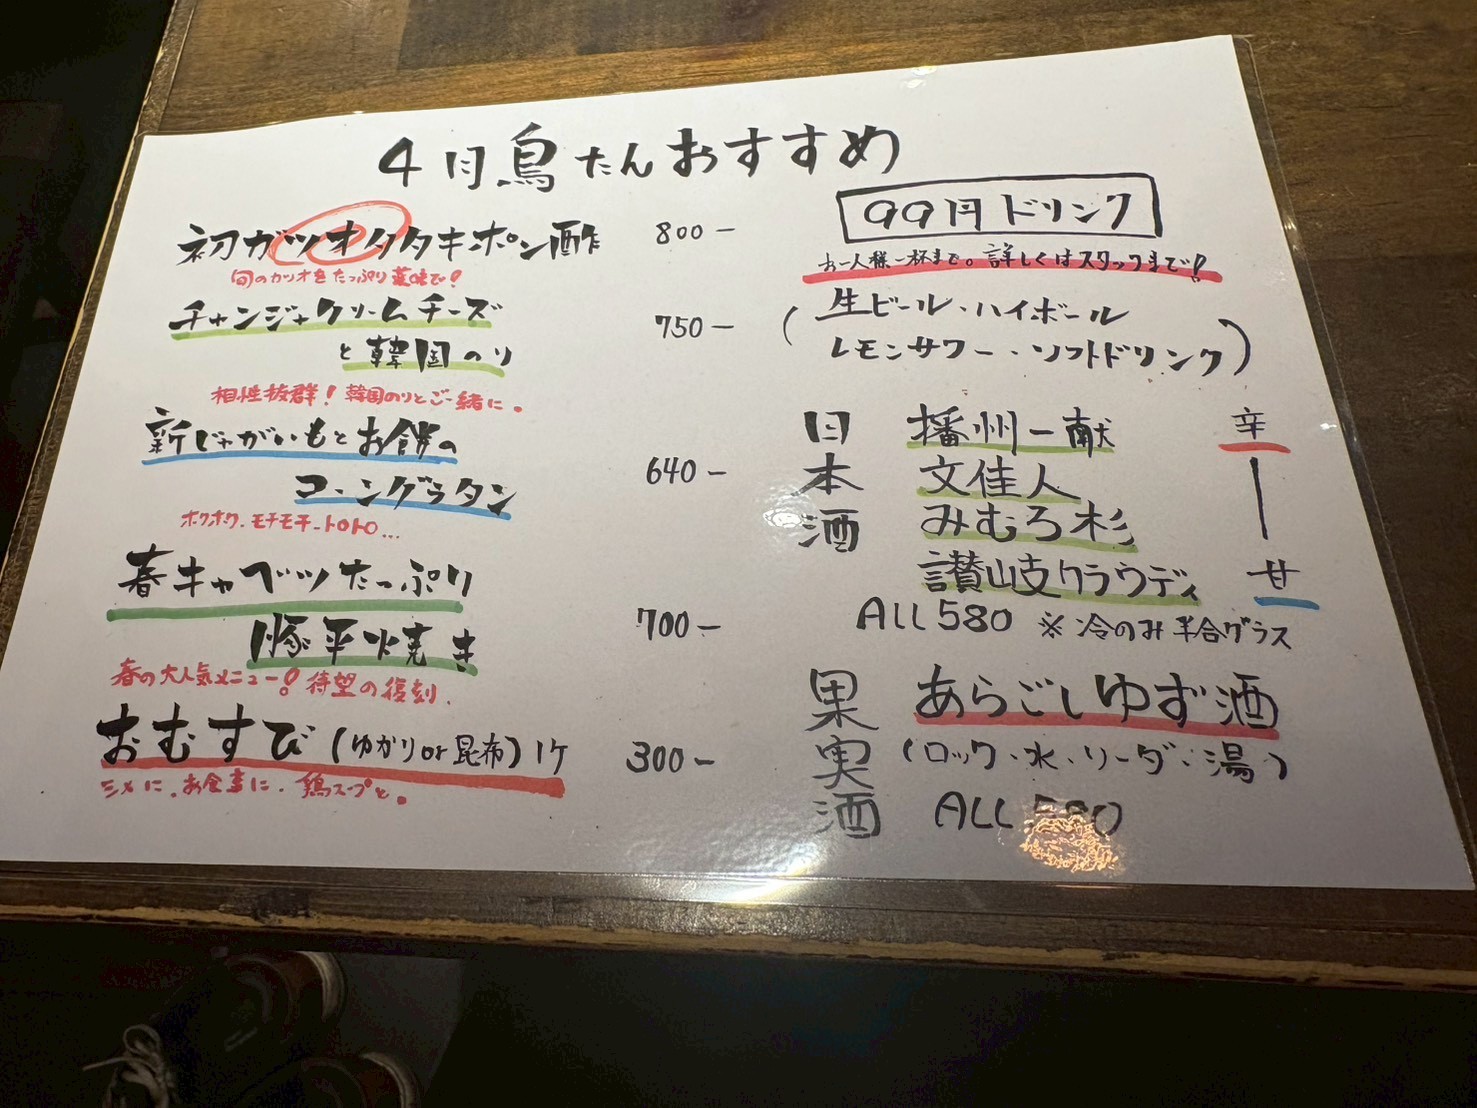 4月鳥たんおすすめ
初ガツオタタキポン酢 800-
旬のカツオをたっぷり薬味で!
チャンジャクリームチーズ
と韓国のり 750-
相性抜群!韓国のりとご一緒に。
新じゃがいもとお餅の
コーングラタン 640-
ホクホク、モチモチ、トロトロ...
春キャベツたっぷり
豚平焼き 700-
春の大人気メニュー!待望の復刻.
おむすび(ゆかりor昆布)1ケ 300-
シメに、お食事に、鶏スープと。
99円ドリンク
お一人様一杯まで。詳しくはスタッフまで!
(生ビール・ハイボール
レモンサワー・ソフトドリンク)
日本酒
播州一献 辛
文佳人
みむろ杉
讃岐クラウディ 甘
ALL580 ※冷のみ半合グラス
果実酒
あらごしゆず酒
(ロック・水・ソーダ・湯)
ALL 580